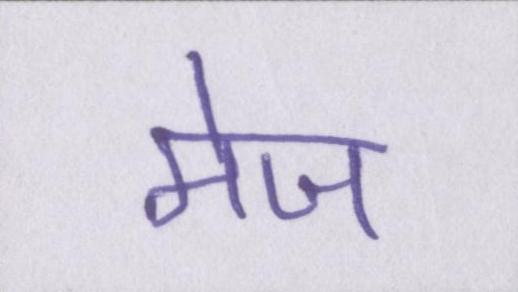 मेज